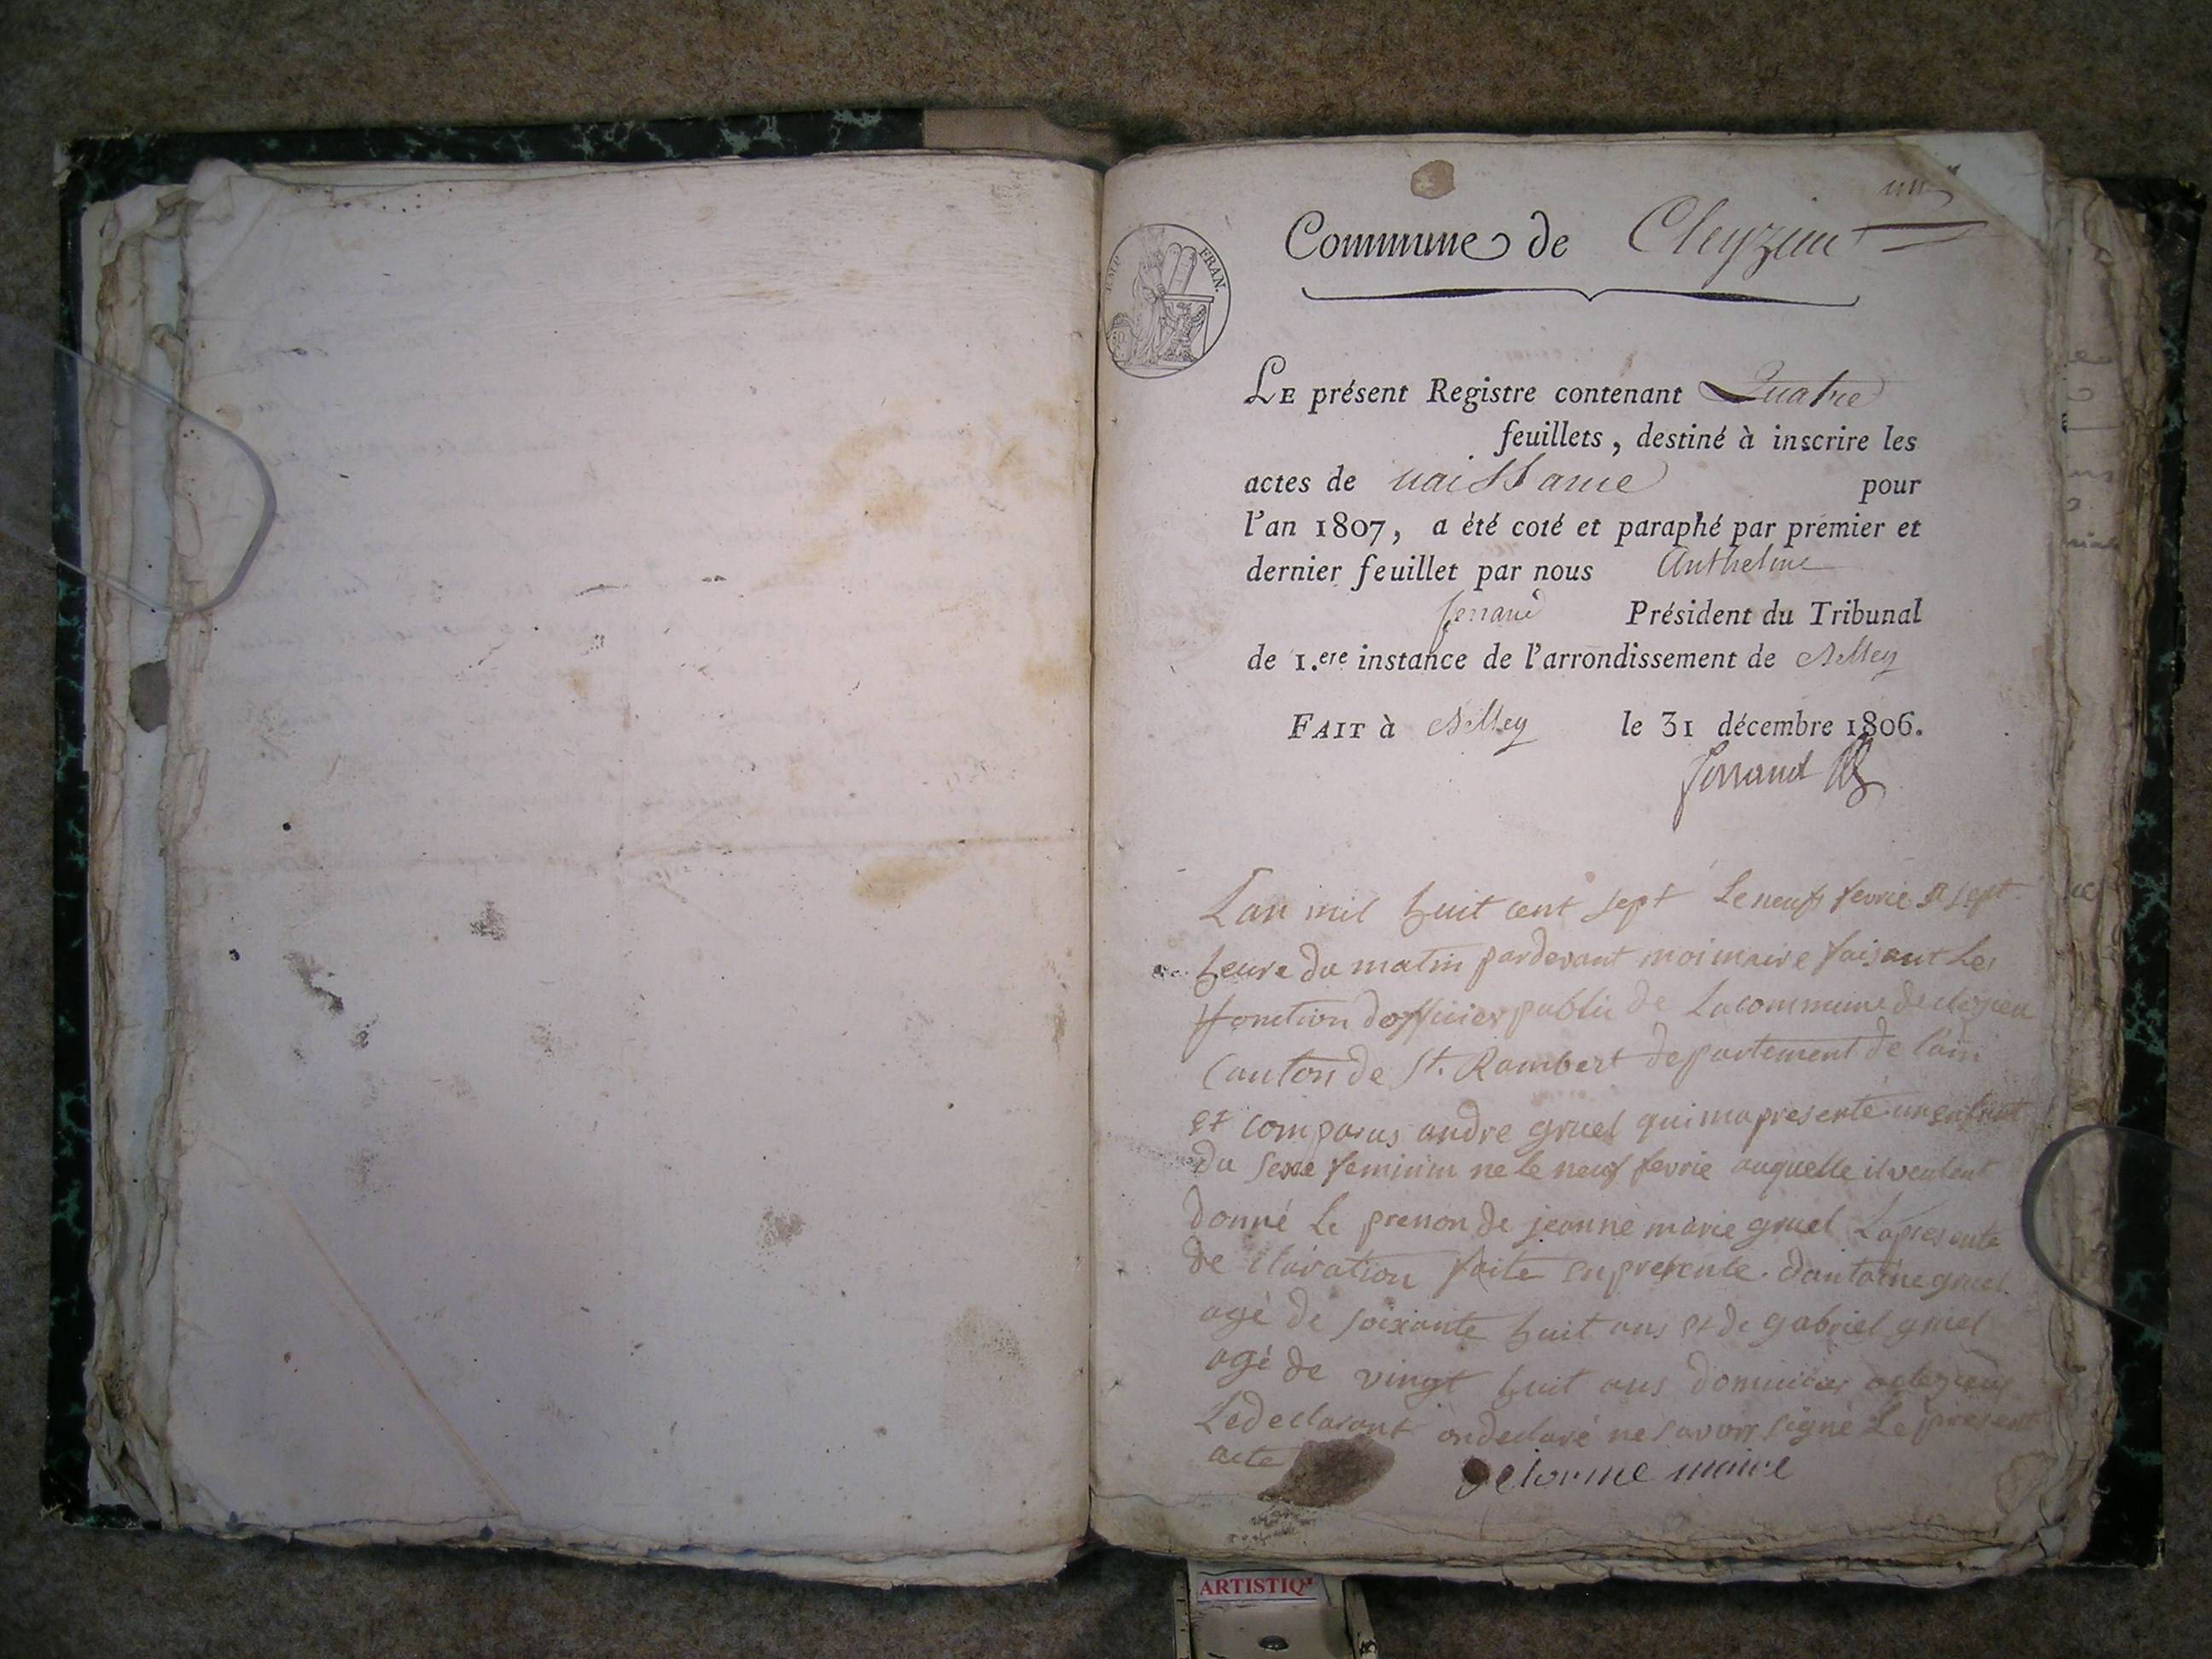 un
Commune de Cleyzieu
EMP. FRAN.
LE présent Registre contenant Quatre
feuillets, destiné à inscrire les
actes de naissance pour
l'an 1807, a été coté et paraphé par premier et
dernier feuillet par nous Anthelme
ferrand Président du Tribunal
de 1.ere instance de l'arrondissement de Belley
FAIT à Belley le 31 décembre 1806.
ferrand
Lan mil huit cent sept Le neuf fevrie a sept
heure du matin pardevant moi maire faisant Les
fonction dofficier public de Lacommune de cleyzieu
Canton de St. Rambert departement de lain
et comparus andre gruel qui ma presenté un enfant
du sexe feminin ne le neuf fevrie auquelle il veulent
donné Le prenon de jeanne marie gruel Lapresente
de claration faite en presente. dantoine gruel
agé de soixante huit ans et de gabriel gruel
agé de vingt huit ans domicies acleyzieu
Ledeclarant ondeclaré ne savoir signé Le present
acte
delorme maire
ARTISTIQ